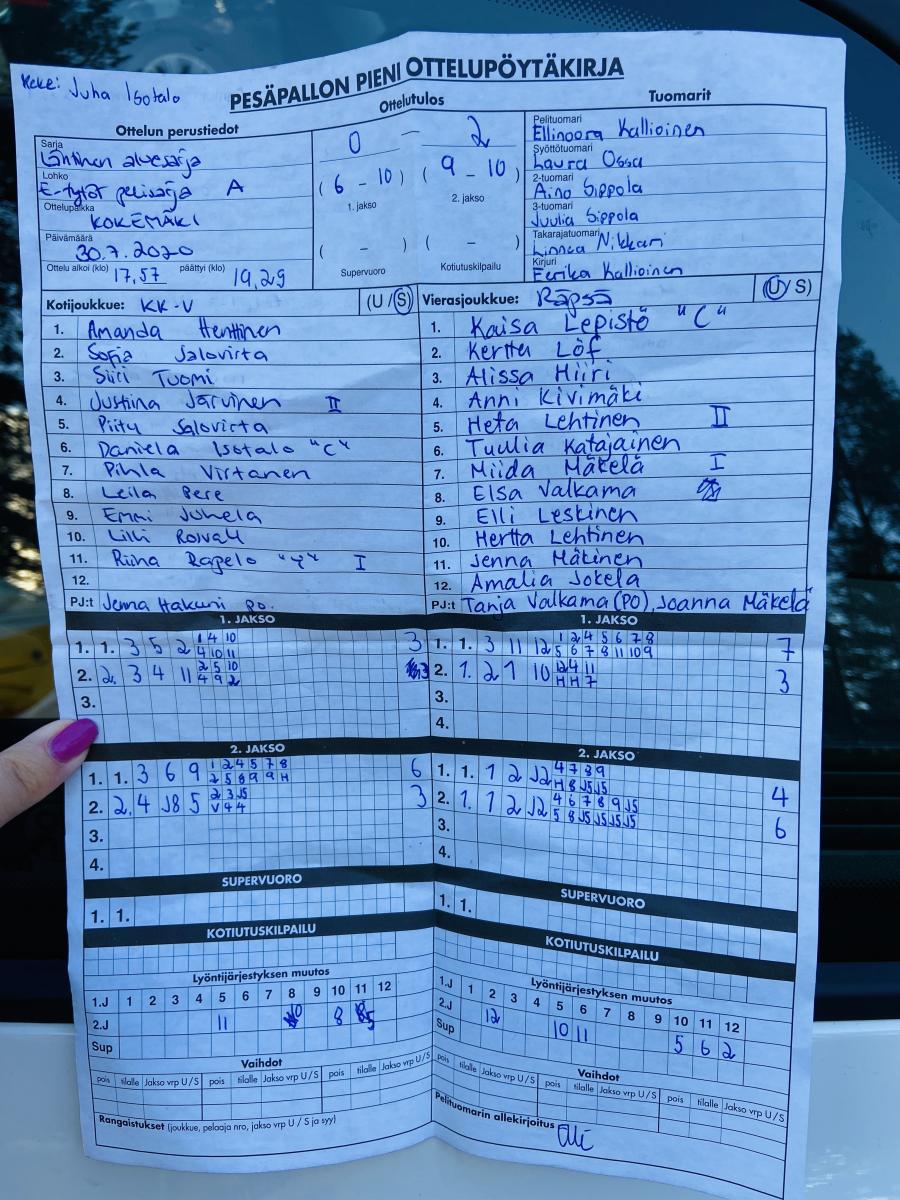 Keke: Juha Isotalo
PESÄPALLON PIENI OTTELUPÖYTÄKIRJA
Ottelun perustiedot
Sarja
Läntinen aluesarja
Lohko
E-tytöt pelisarja A
Ottelupaikka
KOKEMÄKI
Päivämäärä
30.7.2020
Ottelu alkoi (klo) 17,57 päättyi (klo) 19,29
Ottelutulos
0 — 2
(6 - 10) (9 - 10)
1. jakso 2. jakso
( - ) ( - )
Supervuoro Kotiutuskilpailu
Tuomarit
Pelituomari
Ellinoora Kallioinen
Syöttötuomari
Laura Ossa
2-tuomari
Aino Sippola
3-tuomari
Juulia Sippola
Takarajatuomari
Linnea Nikkari
Kirjuri
Eerika Kallioinen
Kotijoukkue: KK-V (U / S)
1. Amanda Henttinen
2. Sofia Salovirta
3. Siiri Tuomi
4. Justiina Järvinen II
5. Piitu Salovirta
6. Daniela Isotalo "C"
7. Pihla Virtanen
8. Leila Bere
9. Emmi Juhela
10. Lilli
11. Riina Rapelo "Y" I
12.
PJ:t Jenna Hakuni po.
Vierasjoukkue: Räpsä (U / S)
1. Kaisa Lepistö "C"
2. Kertta Löf
3. Alissa Hiiri
4. Anni Kivimäki
5. Heta Lehtinen II
6. Tuulia Katajainen
7. Miida Mäkelä I
8. Elsa Valkama
9. Elli Leskinen
10. Hertta Lehtinen
11. Jenna Mäkinen
12. Amalia Jokela
PJ:t Tanja Valkama (PO), Joanna Mäkelä
1. JAKSO
1. 1. 3 5 2 1 4 10 3
4 10 11
2. 2. 3 4 11 2 5 10 3
4 9 2
3.
1. JAKSO
1. 1. 3 11 12 1 2 4 5 6 7 8 7
5 6 7 8 11 10 9
2. 1. 2 1 10 12 4 11 3
H H 7
3.
4.
2. JAKSO
1. 1. 3 6 9 1 2 4 5 7 8 6
2 5 8 9 9 H
2. 2. 4 J8 5 2 3 J5 3
V 4 4
3.
4.
2. JAKSO
1. 1. 1 2 J2 4 7 8 9 4
H 8 J5 J5
2. 1. 1 2 J2 4 6 7 8 9 J5 6
5 8 J5 J5 J5 J5
3.
4.
SUPERVUORO
1. 1.
KOTIUTUSKILPAILU
SUPERVUORO
1. 1.
KOTIUTUSKILPAILU
Lyöntijärjestyksen muutos
1.J 1 2 3 4 5 6 7 8 9 10 11 12
2.J 11 10 8 5
Sup
Vaihdot
pois tilalle Jakso vrp U / S pois tilalle Jakso vrp U / S pois tilalle Jakso vrp U / S
Rangaistukset (joukkue, pelaaja nro, jakso vrp U / S ja syy)
Lyöntijärjestyksen muutos
1.J 1 2 3 4 5 6 7 8 9 10 11 12
2.J 12 10 11 5 6 2
Sup
Vaihdot
pois tilalle Jakso vrp U / S pois tilalle Jakso vrp U / S pois tilalle Jakso vrp U / S
Pelituomarin allekirjoitus